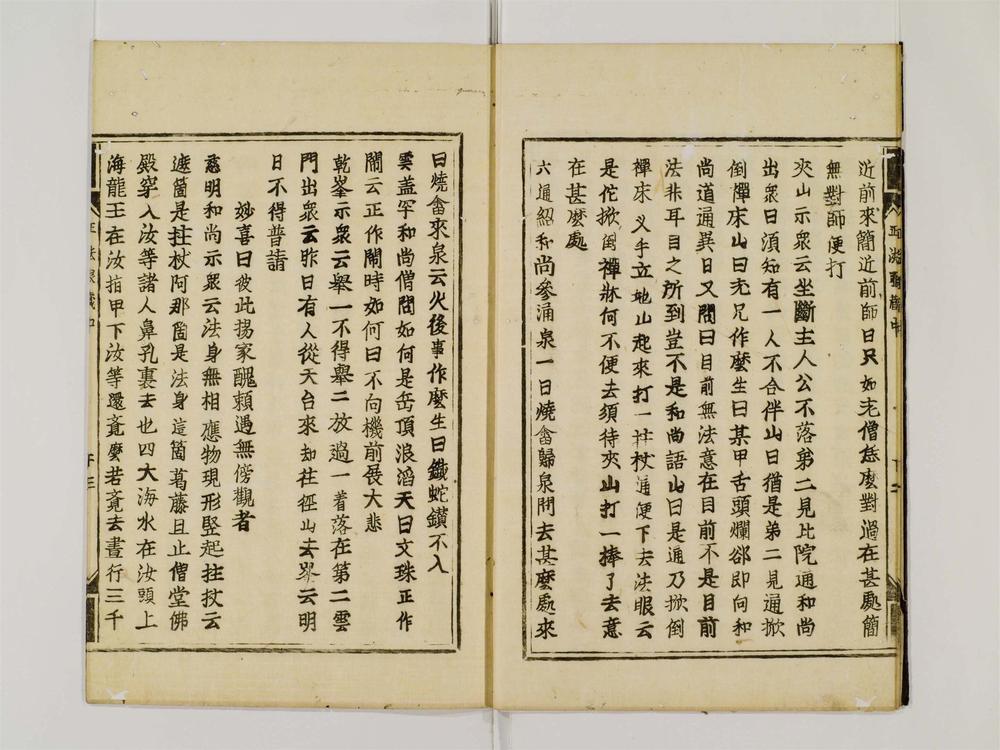 近前來簡近前師曰只如老僧恁麼對過在甚處簡
無對師便打
夾山示衆云坐斷主人公不落弟二見比院通和尚
出衆曰須知有一人不合伴山曰猶是弟二見通掀
倒禪床山曰老兄作麼生曰某甲舌頭爛郤即向和
尚道通異日又問曰目前無法意在目前不是目前
法非耳目之所到豈不是和尚語山曰是通乃掀倒
禪床叉手立地山起來打一拄杖通便下去法眼云
是佗掀倒禪牀何不便去須待夾山打一棒了去意
在甚麼處
六通紹和尚參涌泉一日燒畬歸泉問去甚麼處來
曰燒畬來泉云火後事作麼生曰鐵蛇鑽不入
雲盖罕和尚僧問如何是岳頂浪滔天曰文珠正作
閙云正作閙時如何曰不向機前展大悲
乾峯示衆云舉一不得舉二放過一着落在第二雲
門出衆云昨日有人從天台來却往徑山去峯云明
日不得普請
妙喜曰彼此揚家醜賴遇無傍觀者
慈明和尚示衆云法身無相應物現形竪起拄杖云
遮箇是拄杖阿那箇是法身這箇葛藤且止僧堂佛
殿穿入汝等諸人鼻孔裏去也四大海水在汝頭上
海龍王在汝指甲下汝等還竟麼若竟去晝行三千